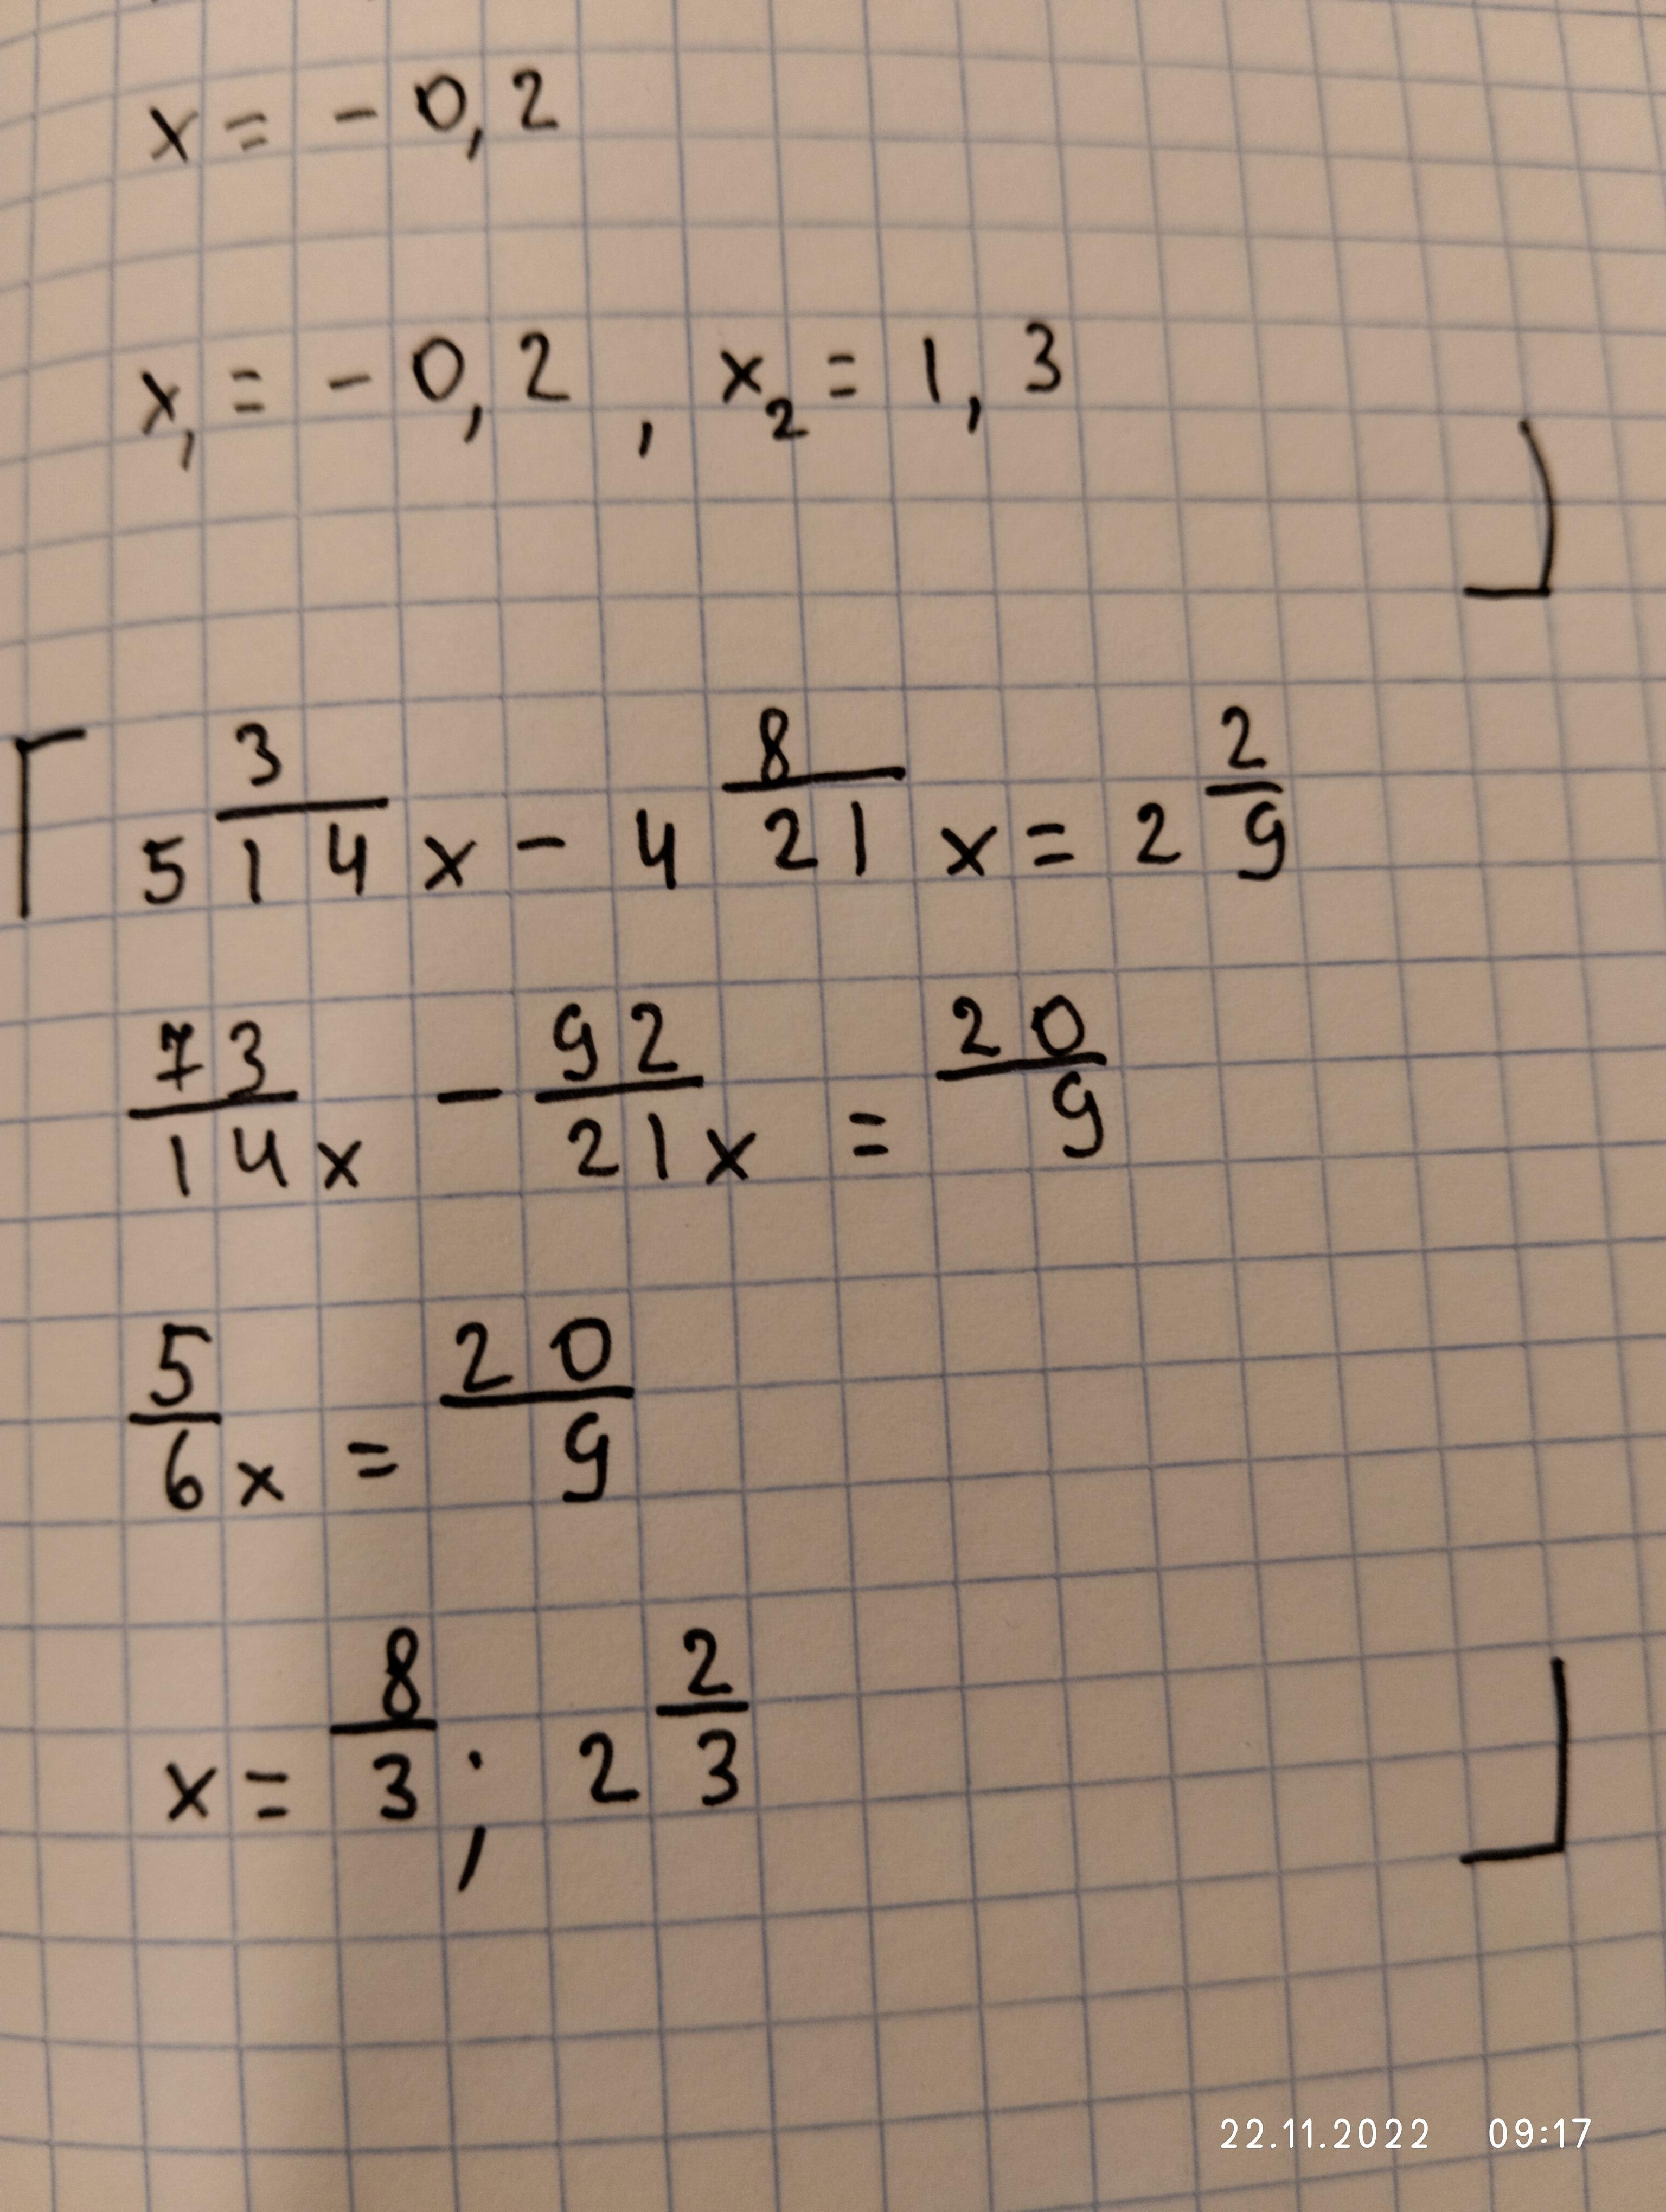 x = - 0,2
x₁ = - 0,2, x₂ = 1,3
5 3/14 x - 4 8/21 x = 2 2/9
73/14 x - 92/21 x = 20/9
5/6 x = 20/9
x = 8/3; 2 2/3
22.11.2022 09:17